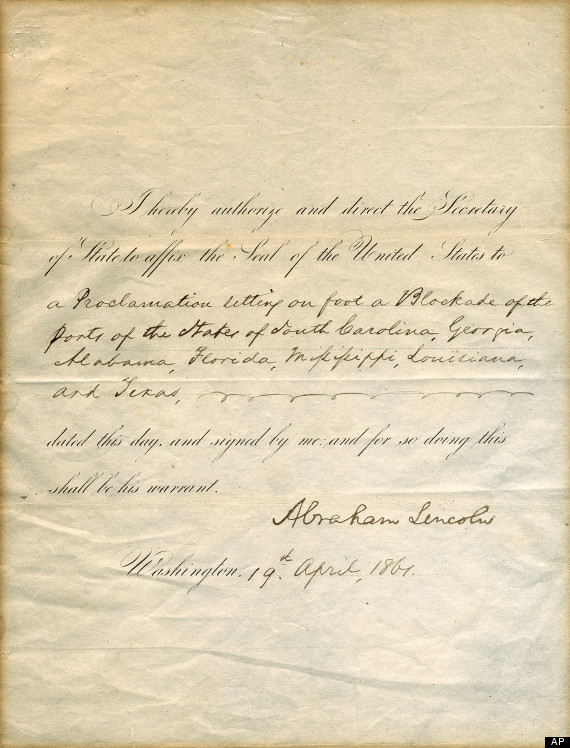 I hereby authorize and direct the Secretary
of State to affix the Seal of the United States to
a Proclamation setting on foot a Blockade of the
ports of the States of South Carolina, Georgia,
Alabama, Florida, Mississippi, Louisiana,
and Texas,
dated this day, and signed by me: and for so doing this
shall be his warrant.
Abraham Lincoln
Washington, 19th April, 1861.
AP